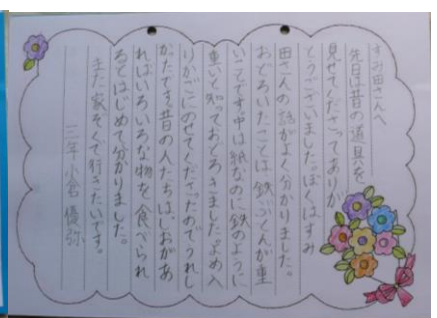 すみ田さんへ
先日は昔の道具を
見せてくださってありが
とうございました。ぼくはすみ
田さんの話がよく分かりました。
おどろいたことは、鉄びんが重
いことです。中は紙なのに鉄のように
重いと知っておどろきました。よめ入
りかごにのせてくださったのでうれし
かったです。昔の人たちは、しおがあ
ればいろいろな物を食べられ
るとはじめて分かりました。
また家ぞくで行きたいです。
三年 小倉 優弥